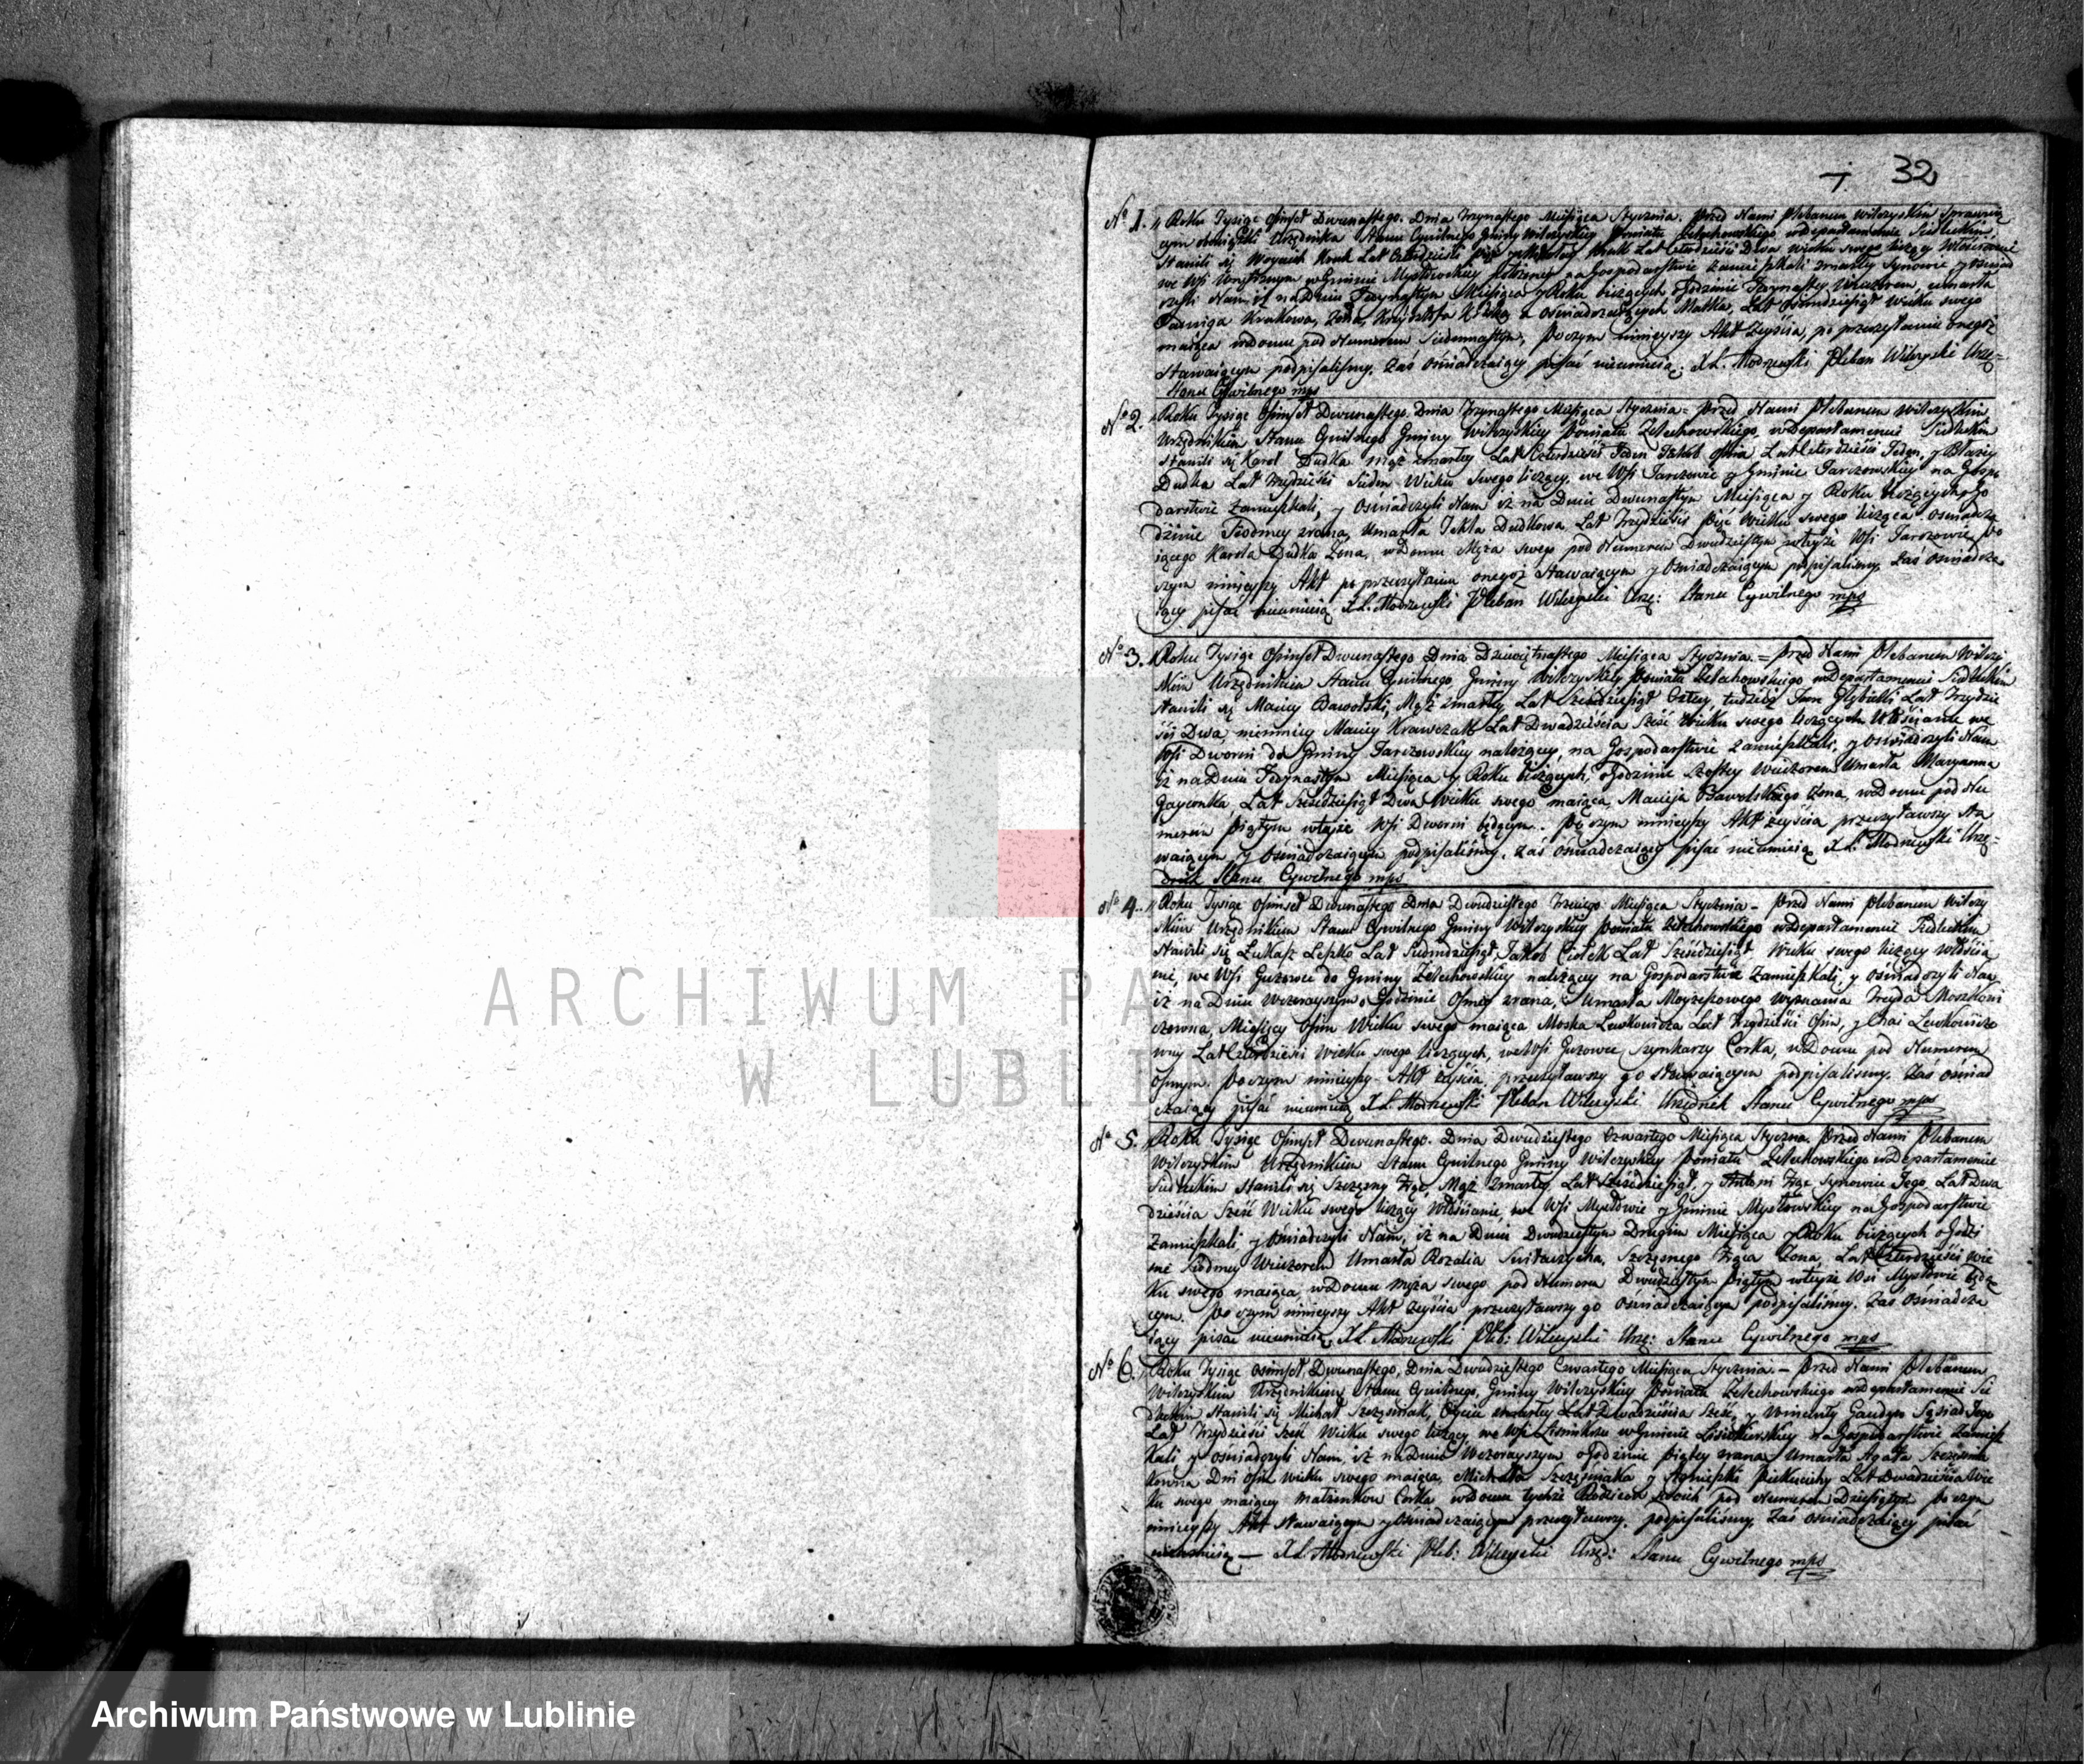 7 32
No 1. Roku Tysiąc Ośmset Dwunastego. Dnia Trzynastego Miesiąca Stycznia. Przed Nami Plebanem Wilczyskim Sprawuią
cym obowiązki Urzędnika Stanu Cywilnego Gminy Wilczyskiey Powiatu Żelechowskiego w Departamencie Siedleckim,
Stawili się Woyciech Kruk Lat Czterdzieści Kruk Lat Czterdzieści Dwa wieku swego liczący Włościanie
we Wsi w Gminie Mysłowskiey na Gospodarstwie zamieszkali zmarłey Synowie y oświad
czyli Nam iż na Dniu Jedynastym Miesiąca y Roku bieżących o Godzinie Wieczorem, umarła
Krukowa, Żona, a oświadczaiących Matka, Lat Ośmdziesiąt wieku swego
maiąca w Domu pod Numerem Siedmnastym, Poczym ninieyszy Akt Zeyścia, po przeczytaniu onegoż
Stawaiącym podpisaliśmy. Zaś Oświadczaiący pisać nieumieią. X. L. Modrzewski Pleban Wilczyski Urzę=
Stanu Cywilnego mps
No 2. Roku Tysiąc Ośmset Dwunastego. Dnia Trzynastego Miesiąca Stycznia = Przed Nami Plebanem Wilczyskim
Urzędnikiem Stanu Cywilnego Gminy Wilczyskiey Powiatu Żelechowskiego, w Departamencie Siedleckim
Stawili się Karol Dudka mąż zmarłey Lat Czterdzieści Jeden Jakob Lat Czterdzieści Jeden, y Błażey
Dudka Lat Trzydzieści Siedm Wieku Swego liczący, we Wsi Jarczowie y Gminie Jarczowskiey na Gospo
darstwie Zamieszkali, y Oświadczyli Nam iż na Dniu Dwunastym Miesiąca y Roku bieżących o Go
dzinie Siodmey zrana, Umarła Tekla Dudkowa Lat Trzydzieści Pięć Wieku swego licząca Oświadcza
iącego Karola Dudka Żona, w Domu Męża swego pod Numerem Dwudziestym w teyże Wsi Jarczowie, Po
czym ninieyszy Akt po przeczytaniu onegoż Stawaiącym y Oświadczaiącym podpisaliśmy, Zaś Oświadcza
iący pisać nieumieią X. L. Modrzewski Pleban Wilczyski Urzę: Stanu Cywilnego mps
No 3. Roku Tysiąc Ośmset Dwunastego Dnia Dziewiętnastego Miesiąca Stycznia. = Przed Nami Plebanem Wilczy
skim Urzędnikiem Stanu Cywilnego Gminy Wilczyskiey Powiatu Żelechowskiego w Departamencie Siedleckim
stawili się Maciey Bawolski, Mąż zmarłey Lat Sześćdziesiąt Cztery, tudzież Jan Lat Trzydzie
ści Dwa, niemniey Maciey Krawczak Lat Dwadzieścia Sześć Wieku swego liczących Włościanie we
Wsi Dworni do Gminy Jarczowskiey należącey, na Gospodarstwie Zamieszkali, y Oświadczyli Nam
iż na Dniu Jedynastym Miesiąca y Roku bieżących, o Godzinie Szóstey Wieczorem Umarła Maryanna
Gayconka, Lat Sześćdziesiąt Dwa Wieku swego maiąca, Macieja Bawolskiego Żona, w Domu pod Nu
merem Piątym w teyże Wsi Dworni będącym. Po czym ninieyszy Akt Zeyścia przeczytawszy Sta
waiącym y Oświadczaiącym podpisaliśmy, zaś oświadczaiący pisać nieumieią X. L. Modrzewski Urzę-
dnik Stanu Cywilnego mps
No 4. Roku Tysiąc Ośmset Dwunastego Dnia Dwudziestego Trzeciego Miesiąca Stycznia - Przed Nami Plebanem Wilczy
skim Urzędnikiem Stanu Cywilnego Gminy Wilczyskiey Powiatu Żelechowskiego w Departamencie Siedleckim
Stawili się Łukasz Lepko Lat Siedmdziesiąt, Jakob Ciołek Lat Sześćdziesiąt Wieku swego liczący Włościa
nie, we Wsi Guzowce do Gminy Żelechowskiey należącey na Gospodarstwie Zamieszkali, y oświadczyli Nam
iż na Dniu Wczorayszym o Godzinie Osmey zrana, Umarła Moyżeszowego Wyznania Freyda Moszkowi
czowna, Miesięcy Ośm Wieku swego maiąca Moska Lewkowicza Lat Trzydzieści Ośm, y Chai Lewkowiczo
wny Lat Czterdzieści Wieku swego liczących, we Wsi Guzowce Szynkarzy Corka, w Domu pod Numerem
Osmym. Poczym ninieyszy Akt Zeyścia przeczytawszy go Stawaiącym podpisaliśmy. Zaś oświad
czaiący pisać nieumieią X. L. Modrzewski Pleban Wilczyski Urzędnik Stanu Cywilnego mps
No 5. Roku Tysiąc Ośmset Dwunastego. Dnia Dwudziestego Czwartego Miesiąca Stycznia. Przed Nami Plebanem
Wilczyskim Urzędnikiem Stanu Cywilnego Gminy Wilczyskiey Powiatu Żelechowskiego w Departamencie
Siedleckim Stawili się Szczęsny Mąż zmarłey, Lat Sześćdziesiąt, y Antoni Synowiec Jego, Lat Dwa
dzieścia Sześć Wieku swego liczący Włościanie, we Wsi Mysłowie y Gminie Mysłowskiey na Gospodarstwie
Zamieszkali, y Oświadczyli Nam, iż na Dniu Dwudziestym Drugim Miesiąca y Roku bieżących o Godzi
nie Siodmey Wieczorem Umarła Rozalia Szczęsnego Żona, Lat Czterdzieści Wie
ku swego maiąca, w Domu Męża swego pod Numerem Dwudziestym Piątym w teyże Wsi Mysłowie będą
cym. Po czym ninieyszy Akt Zeyścia przeczytawszy go Oświadczaiącym podpisaliśmy. Zaś Oświadcza
iący pisać nieumieią, X. L. Modrzewski Pleb: Wilczyski Urzę: Stanu Cywilnego mps
No 6. Roku Tysiąc Ośmset Dwunastego, Dnia Dwudziestego Czwartego Miesiąca Stycznia. - Przed Nami Plebanem
Wilczyskim Urzędnikiem Stanu Cywilnego, Gminy Wilczyskiey Powiatu Żelechowskiego w Departamencie Sie
dleckim Stawili się Michał Szczęśniak, Oyciec zmarłey Lat Dwadzieścia Sześć, y Wincenty Sąsiad Jego
Lat Trzydzieści Sześć Wieku swego liczący we Wsi w Gminie na Gospodarstwie Zamiesz
kali y oświadczyli Nam, iż na Dniu Wczorayszym o Godzinie Piątey zrana Umarła Agata Szczęśnia
kowna Dni Ośm wieku swego maiąca, Michała Szczęśniaka y Agnieszki Lat Dwadzieścia Wie
ku swego maiącey Małżonkow Corka w Domu tychże Rodzicow swoich pod Numerem Dziesiątym Po czym
ninieyszy Akt Stawaiącym y Oświadczaiącym przeczytawszy, podpisaliśmy, Zaś Oświadczaiący pisać
nieumieią — X. L. Modrzewski Pleb: Wilczyski Urzęd: Stanu Cywilnego mps
ARCHIWUM PA
W LUBLIN
Archiwum Państwowe w Lublinie